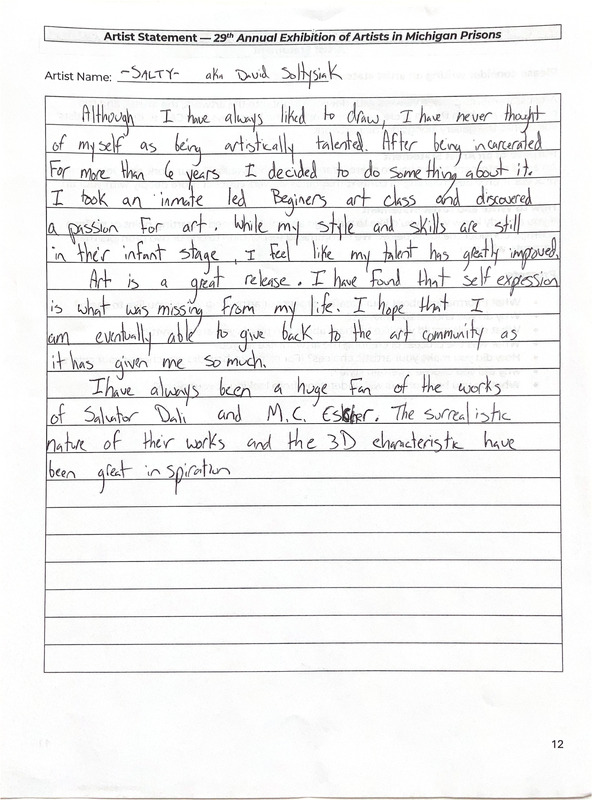 Artist Statement — 29th Annual Exhibition of Artists in Michigan Prisons
Artist Name: -SALTY- aka David Soltysiak
Although I have always liked to draw, I have never thought
of myself as being artistically talented. After being incarcerated
For more than 6 years I decided to do something about it.
I took an inmate led Beginers art class and discovered
a passion For art. While my style and skills are still
in their infant stage, I feel like my talent has greatly improved.
Art is a great release. I have found that self expression
is what was missing From my life. I hope that I
am eventually able to give back to the art community as
it has given me so much.
I have always been a huge Fan of the works
of Salvator Dali and M.C. Escher. The surrealistic
nature of their works and the 3D characteristic have
been great inspiration
12